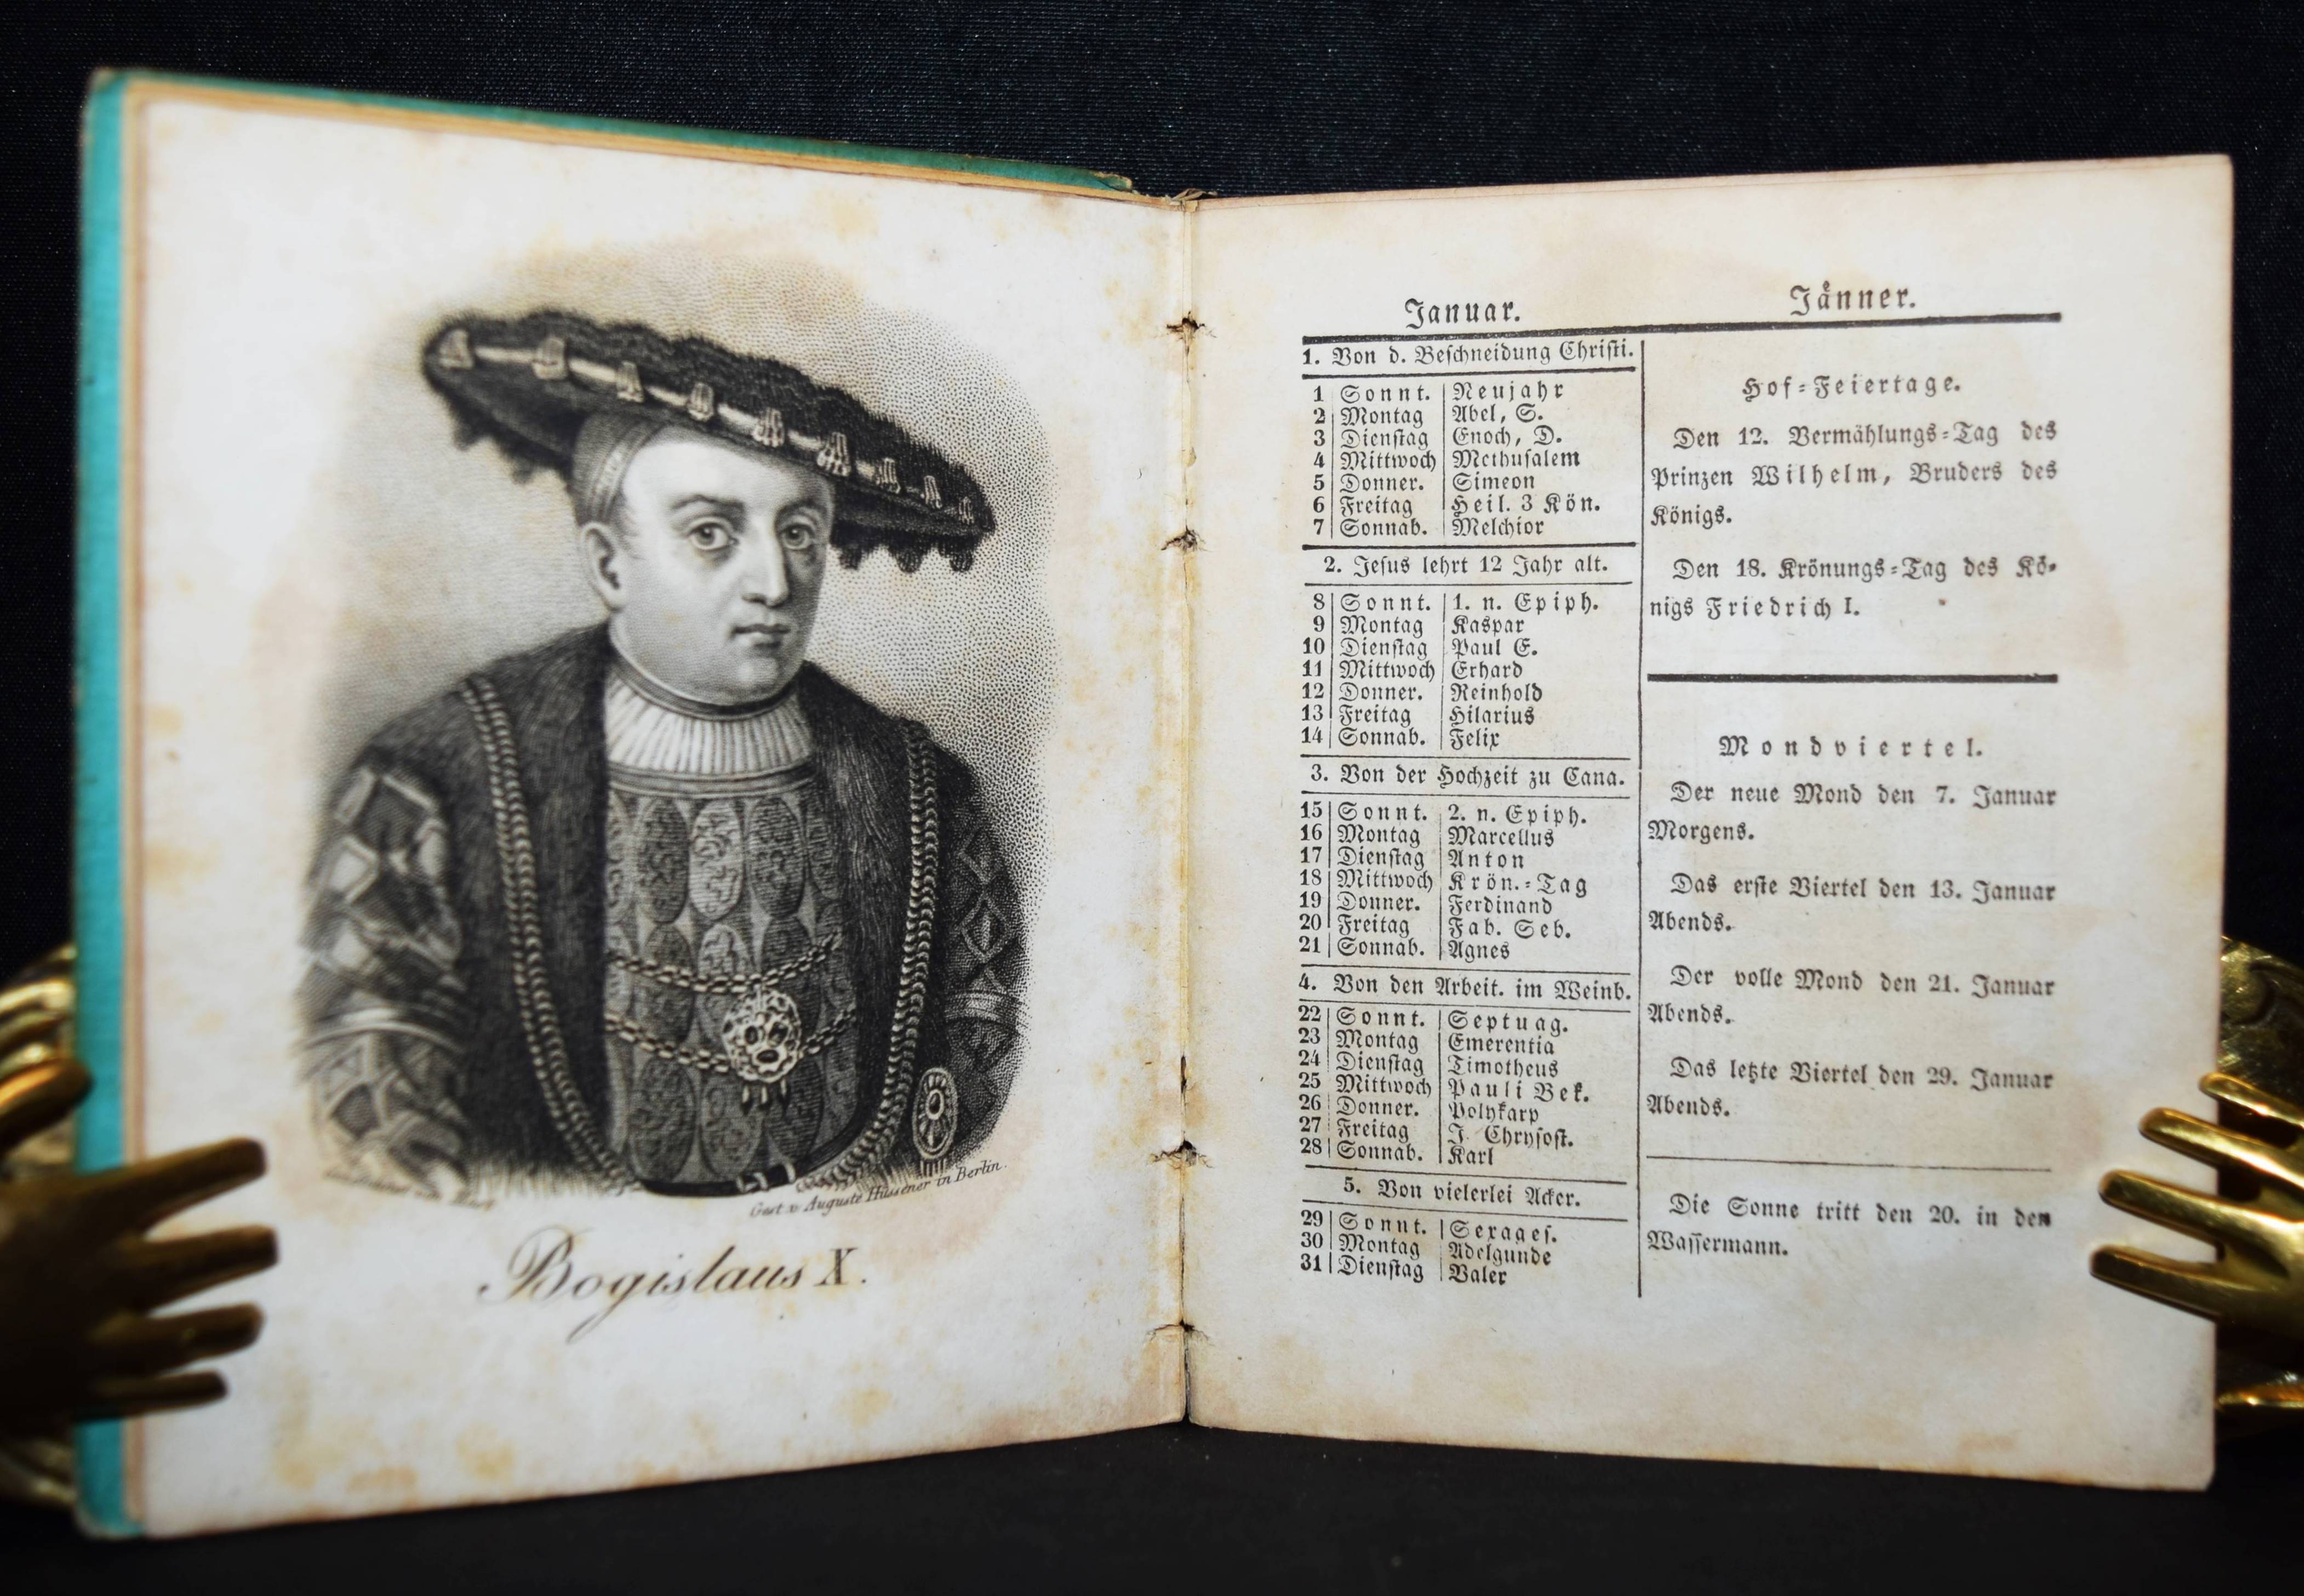 Gest. v. Auguste Hüssener in Berlin.
Bogislaus X.
Januar. Jänner.
1. Von d. Beschneidung Christi.
1 Sonnt. Neujahr
2 Montag Abel, S.
3 Dienstag Enoch, D.
4 Mittwoch Methusalem
5 Donner. Simeon
6 Freitag Heil. 3 Kön.
7 Sonnab. Melchior
2. Jesus lehrt 12 Jahr alt.
8 Sonnt. 1. n. Epiph.
9 Montag Kaspar
10 Dienstag Paul E.
11 Mittwoch Erhard
12 Donner. Reinhold
13 Freitag Hilarius
14 Sonnab. Felix
3. Von der Hochzeit zu Cana.
15 Sonnt. 2. n. Epiph.
16 Montag Marcellus
17 Dienstag Anton
18 Mittwoch Krön.-Tag
19 Donner. Ferdinand
20 Freitag Fab. Seb.
21 Sonnab. Agnes
4. Von den Arbeit. im Weinb.
22 Sonnt. Septuag.
23 Montag Emerentia
24 Dienstag Timotheus
25 Mittwoch Pauli Bek.
26 Donner. Polykarp
27 Freitag J. Chrysost.
28 Sonnab. Karl
5. Von vielerlei Acker.
29 Sonnt. Sexages.
30 Montag Adelgunde
31 Dienstag Valer
Hof-Feiertage.
Den 12. Vermählungs-Tag des
Prinzen Wilhelm, Bruders des
Königs.
Den 18. Krönungs-Tag des Kö-
nigs Friedrich I.
Mondviertel.
Der neue Mond den 7. Januar
Morgens.
Das erste Viertel den 13. Januar
Abends.
Der volle Mond den 21. Januar
Abends.
Das letzte Viertel den 29. Januar
Abends.
Die Sonne tritt den 20. in den
Wassermann.